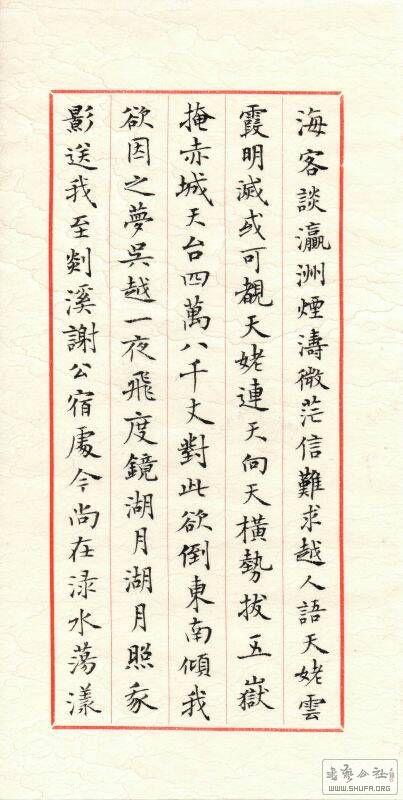 海客談瀛洲煙濤微茫信難求越人語天姥雲
霞明滅或可覩天姥連天向天橫勢拔五嶽
掩赤城天台四萬八千丈對此欲倒東南傾我
欲因之夢吳越一夜飛度鏡湖月湖月照我
影送我至剡溪謝公宿處今尚在淥水蕩漾
書藝公社
WWW.SHUFA.ORG